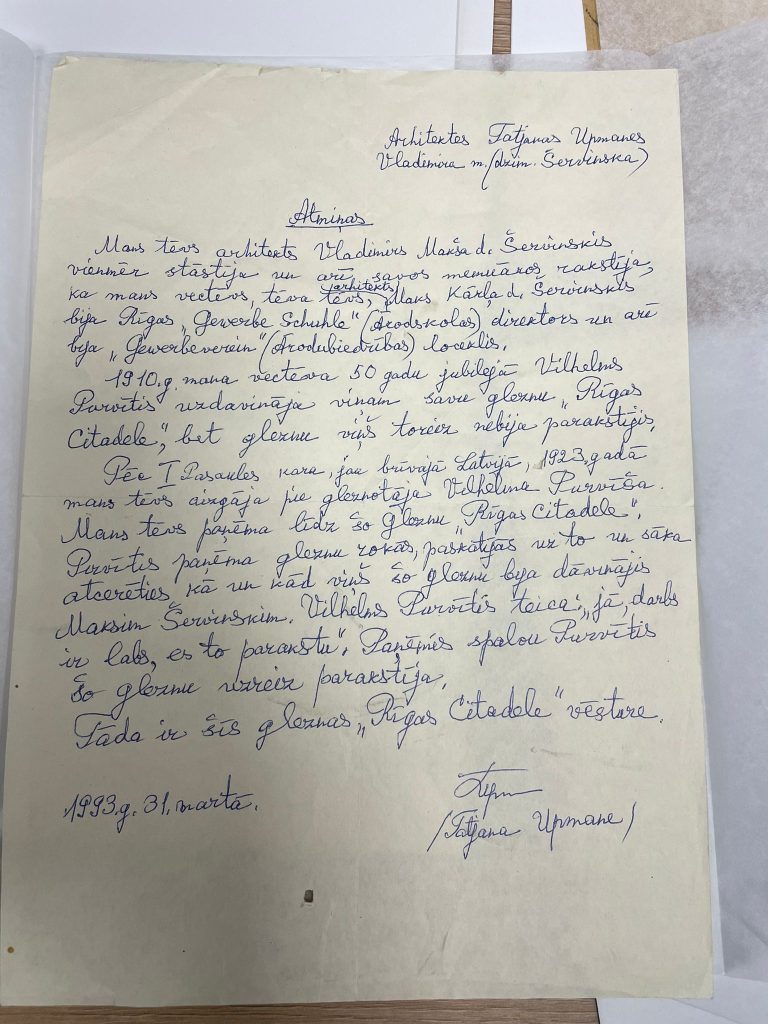 Arhitektes Tatjanas Upmanes
Vladimira m. (dzim. Šervinska)
Atmiņas
Mans tēvs arhitekts Vladimirs Makša d. Šervinskis
vienmēr stāstīja un arī savos memuāros rakstīja,
ka mans vectevs, tēva tēvs, arhitekts Maks Kārļa d. Šervinskis
bija Rīgas „Gewerbe Schuhle" (Arodskolas) direktors un arī
bija „Gewerbeverein" (Arodubiedrības) loceklis.
1910.g. mana vecteva 50 gadu jubilejā Vilhelms
Purvītis uzdavināja viņam savu gleznu „Rīgas
Citadele", bet gleznu viņš toreiz nebija parakstījis.
Pēc I Pasaules kara, jau brīvajā Latvijā, 1923. gadā
mans tēvs aizgāja pie gleznotāja Vilhelma Purvīša.
Mans tēvs paņēma līdz šo gleznu „Rīgas Citadele".
Purvītis paņēma gleznu rokās, paskatījās uz to un sāka
atcerēties kā un kād viņš šo gleznu bija dāvinājis
Maksim Šervinskim. Vilhelms Purvītis teica: „jā, darbs
ir labs, es to parakstu". Paņēmis spalvu Purvītis
šo gleznu uzreiz parakstīja.
Tāda ir šīs gleznas „Rīgas Citadele" vēsture.
1993.g. 31. martā.
/Tatjana Upmane/